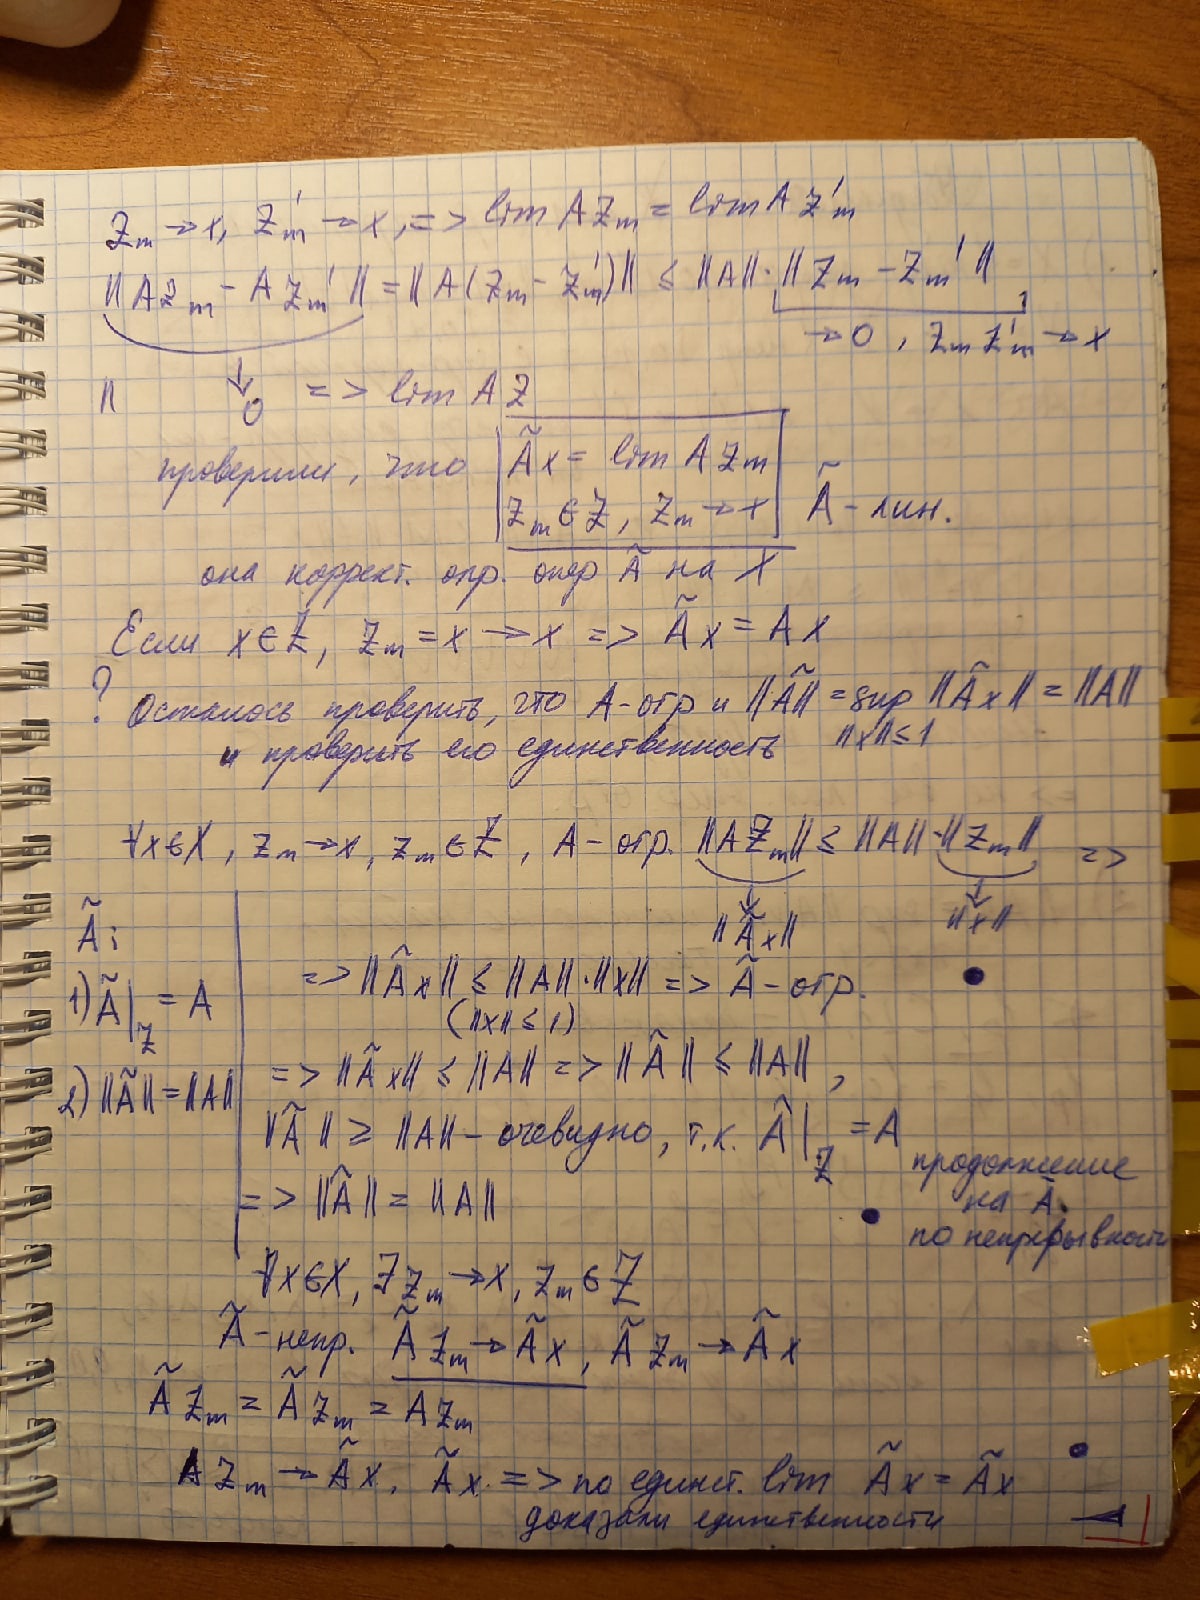 Zₘ → x, Z'ₘ → x, => lim A Zₘ = lim A Z'ₘ
‖A Zₘ - A Zₘ'‖ = ‖A(Zₘ - Z'ₘ)‖ ≤ ‖A‖·‖Zₘ - Zₘ'‖
→ 0 , Zₘ Z'ₘ → x
‖ ↓ 0 => lim A Z
проверили, что Ãx = lim A Zₘ
Zₘ ∈ Z, Zₘ → x Ã - лин.
она коррект. опр. опер Ã на X
Если x ∈ Z, Zₘ = x → x => Ãx = Ax
? Осталось проверить, что A - огр и ‖Ã‖ = sup ‖Ãx‖ = ‖A‖
‖x‖≤1
и проверить его единственность
∀x∈X, Zₘ → x, Zₘ ∈ Z, A - огр. ‖AZₘ‖ ≤ ‖A‖·‖Zₘ‖ =>
↓ ↓
‖Ãx‖ ‖x‖
Ã:
=> ‖Ãx‖ ≤ ‖A‖·‖x‖ => Ã - огр.
1) Ã|_Z = A
(‖x‖ ≤ 1)
=> ‖Ãx‖ ≤ ‖A‖ => ‖Ã‖ ≤ ‖A‖ ,
2) ‖Ã‖ = ‖A‖
‖Ã‖ ≥ ‖A‖ - очевидно, т.к. Ã|_Z = A
продолжение
на Ã.
по непрерывности
=> ‖Ã‖ = ‖A‖
∀x∈X, ∃ Zₘ → x, Zₘ ∈ Z
Ã - непр. Ã Zₘ → Ãx, Ã Zₘ → Ãx
Ã Zₘ = Ã Zₘ = A Zₘ
A Zₘ → Ãx, Ãx. => по единст. lim Ãx = Ãx
доказали единственности